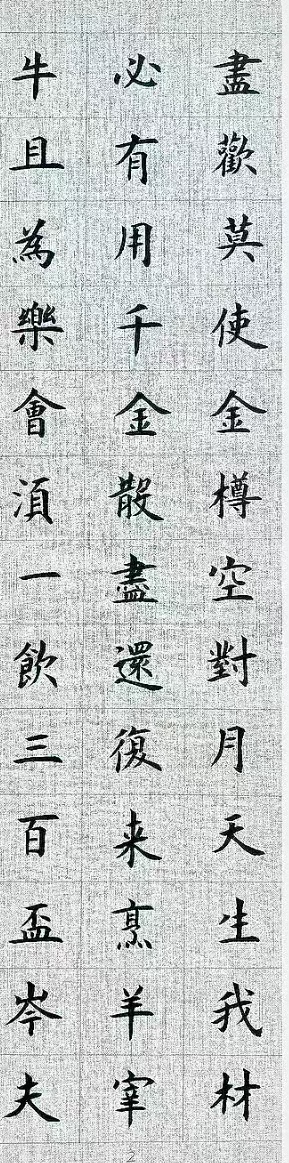 盡歡莫使金樽空對月天生我材
必有用千金散盡還復来烹羊宰
牛且為樂會須一飲三百盃岑夫
2